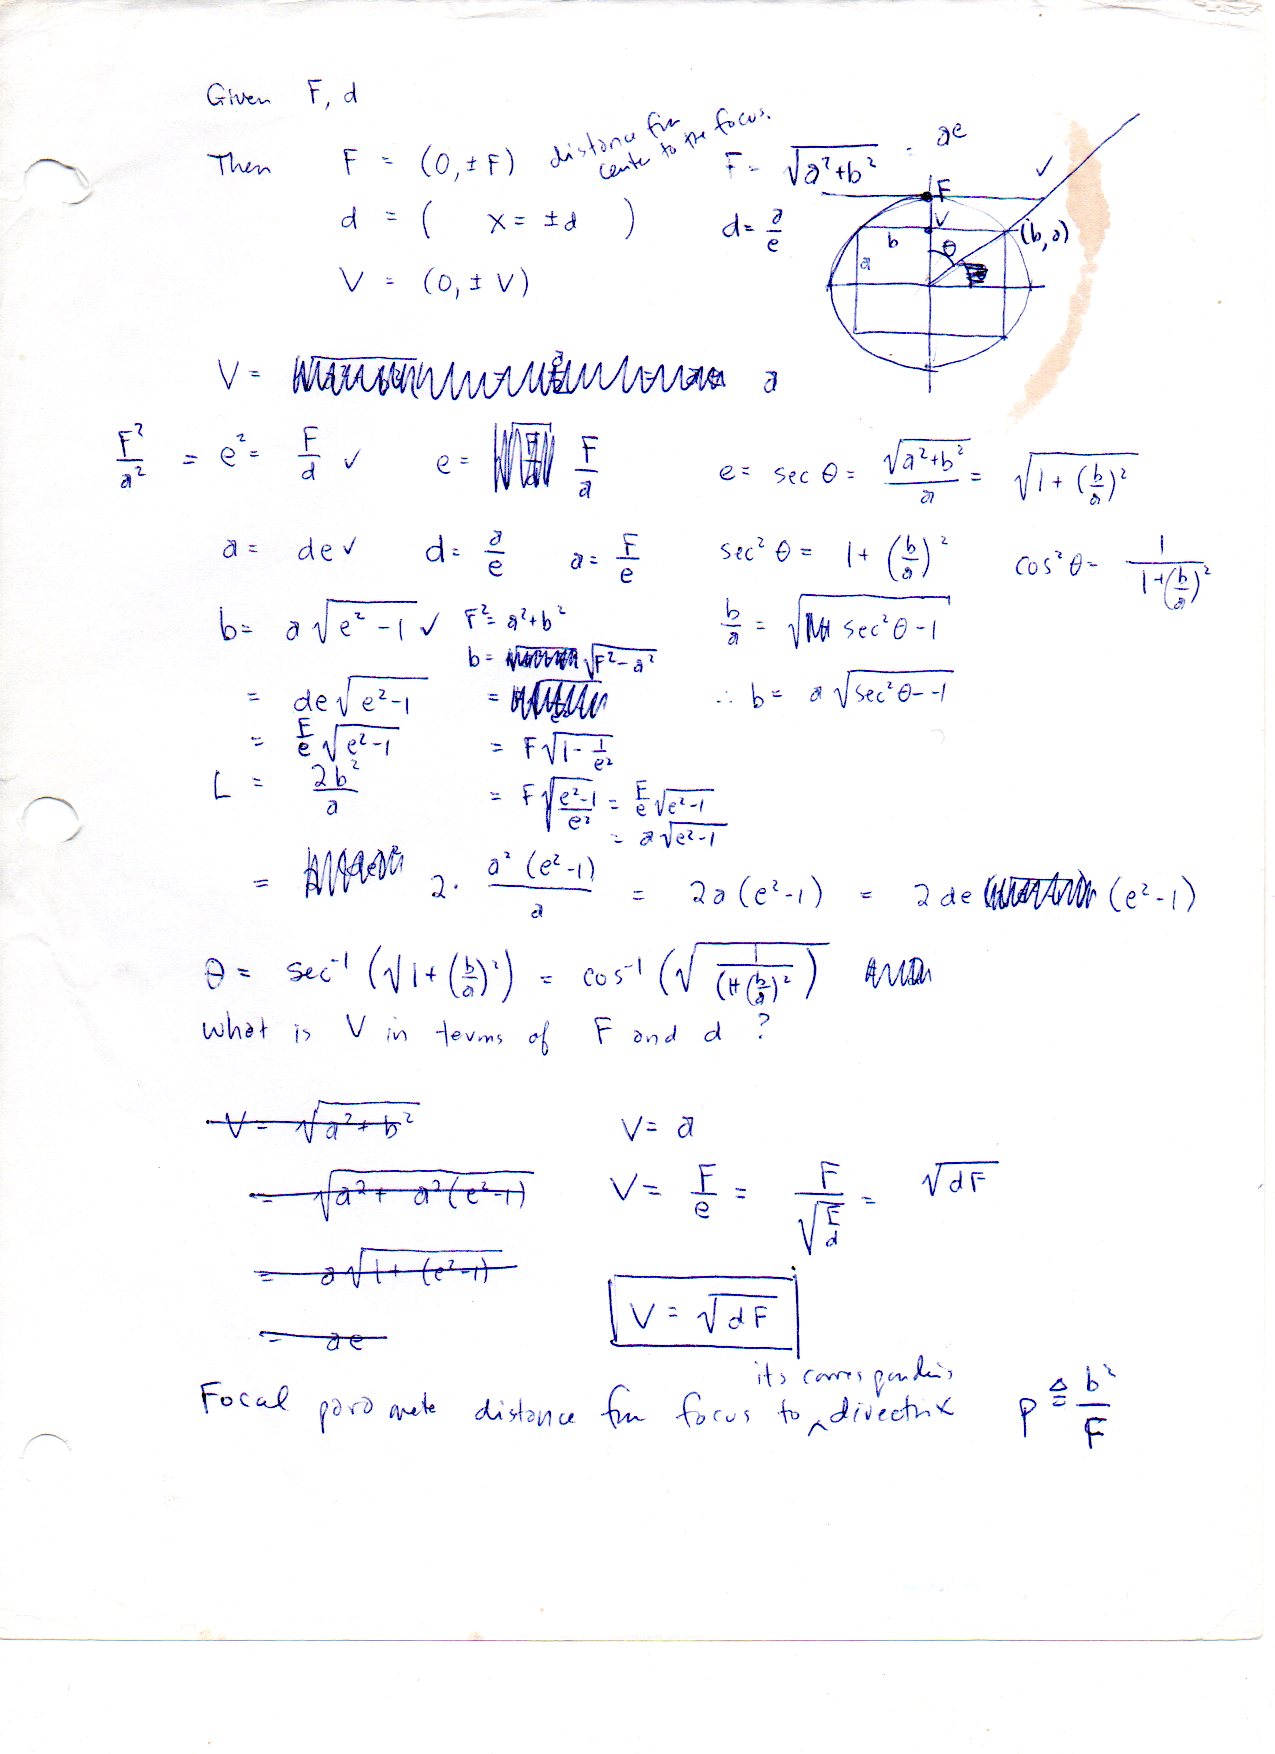 Given F, d
Then F = (0, ±F) distance frm center to the focus. F = √(a²+b²) = ae
d = ( x = ±d ) d = a/e
V = (0, ± V)
F
V
b
θ
(b, a)
a
V = a
F²/a² = e² = F/d ✓ e = F/a e = sec θ = √(a²+b²)/a = √(1 + (b/a)²)
a = de ✓ d = a/e a = F/e sec² θ = 1 + (b/a)² cos² θ = 1/(1+(b/a)²)
b = a √(e² − 1) ✓ F² = a² + b² b/a = √(sec² θ − 1)
b = √(F² − a²)
= de √(e² − 1) ∴ b = a √(sec² θ − 1)
= F/e √(e² − 1) = F √(1 − 1/e²)
L = 2b²/a = F √((e² − 1)/e²) = F/e √(e² − 1)
= a √(e² − 1)
= 2 · a² (e² − 1)/a = 2a (e² − 1) = 2 de (e² − 1)
θ = sec⁻¹ (√(1 + (b/a)²)) = cos⁻¹ (√(1/(1+(b/a)²)))
What is V in terms of F and d ?
V = √(a² + b²) V = a
= √(a² + a² (e² − 1)) V = F/e = F/√(F/d) = √(dF)
= a √(1 + (e² − 1))
V = √(dF)
= ae
its corresponding
Focal paramete distance frm focus to ^ directrix p ≜ b²/F